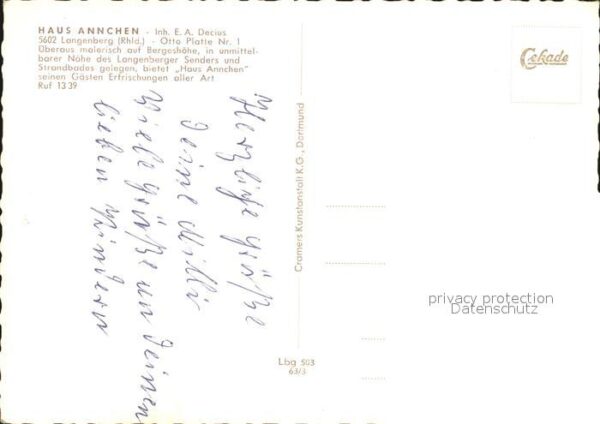 HAUS ANNCHEN - Inh. E. A. Decius
5602 Langenberg (Rhld.) - Otto Platte Nr. 1
Überaus malerisch auf Bergeshöhe, in unmittel-
barer Nähe des Langenberger Senders und
Strandbades gelegen, bietet „Haus Annchen"
seinen Gästen Erfrischungen aller Art
Ruf 13 39
Herzliche Grüße
Deine Milli
Viele Grüße an Deinen
lieben
Cramers Kunstanstalt K.G., Dortmund
Lbg 503
63/3
Cekade
privacy protection
Datenschutz